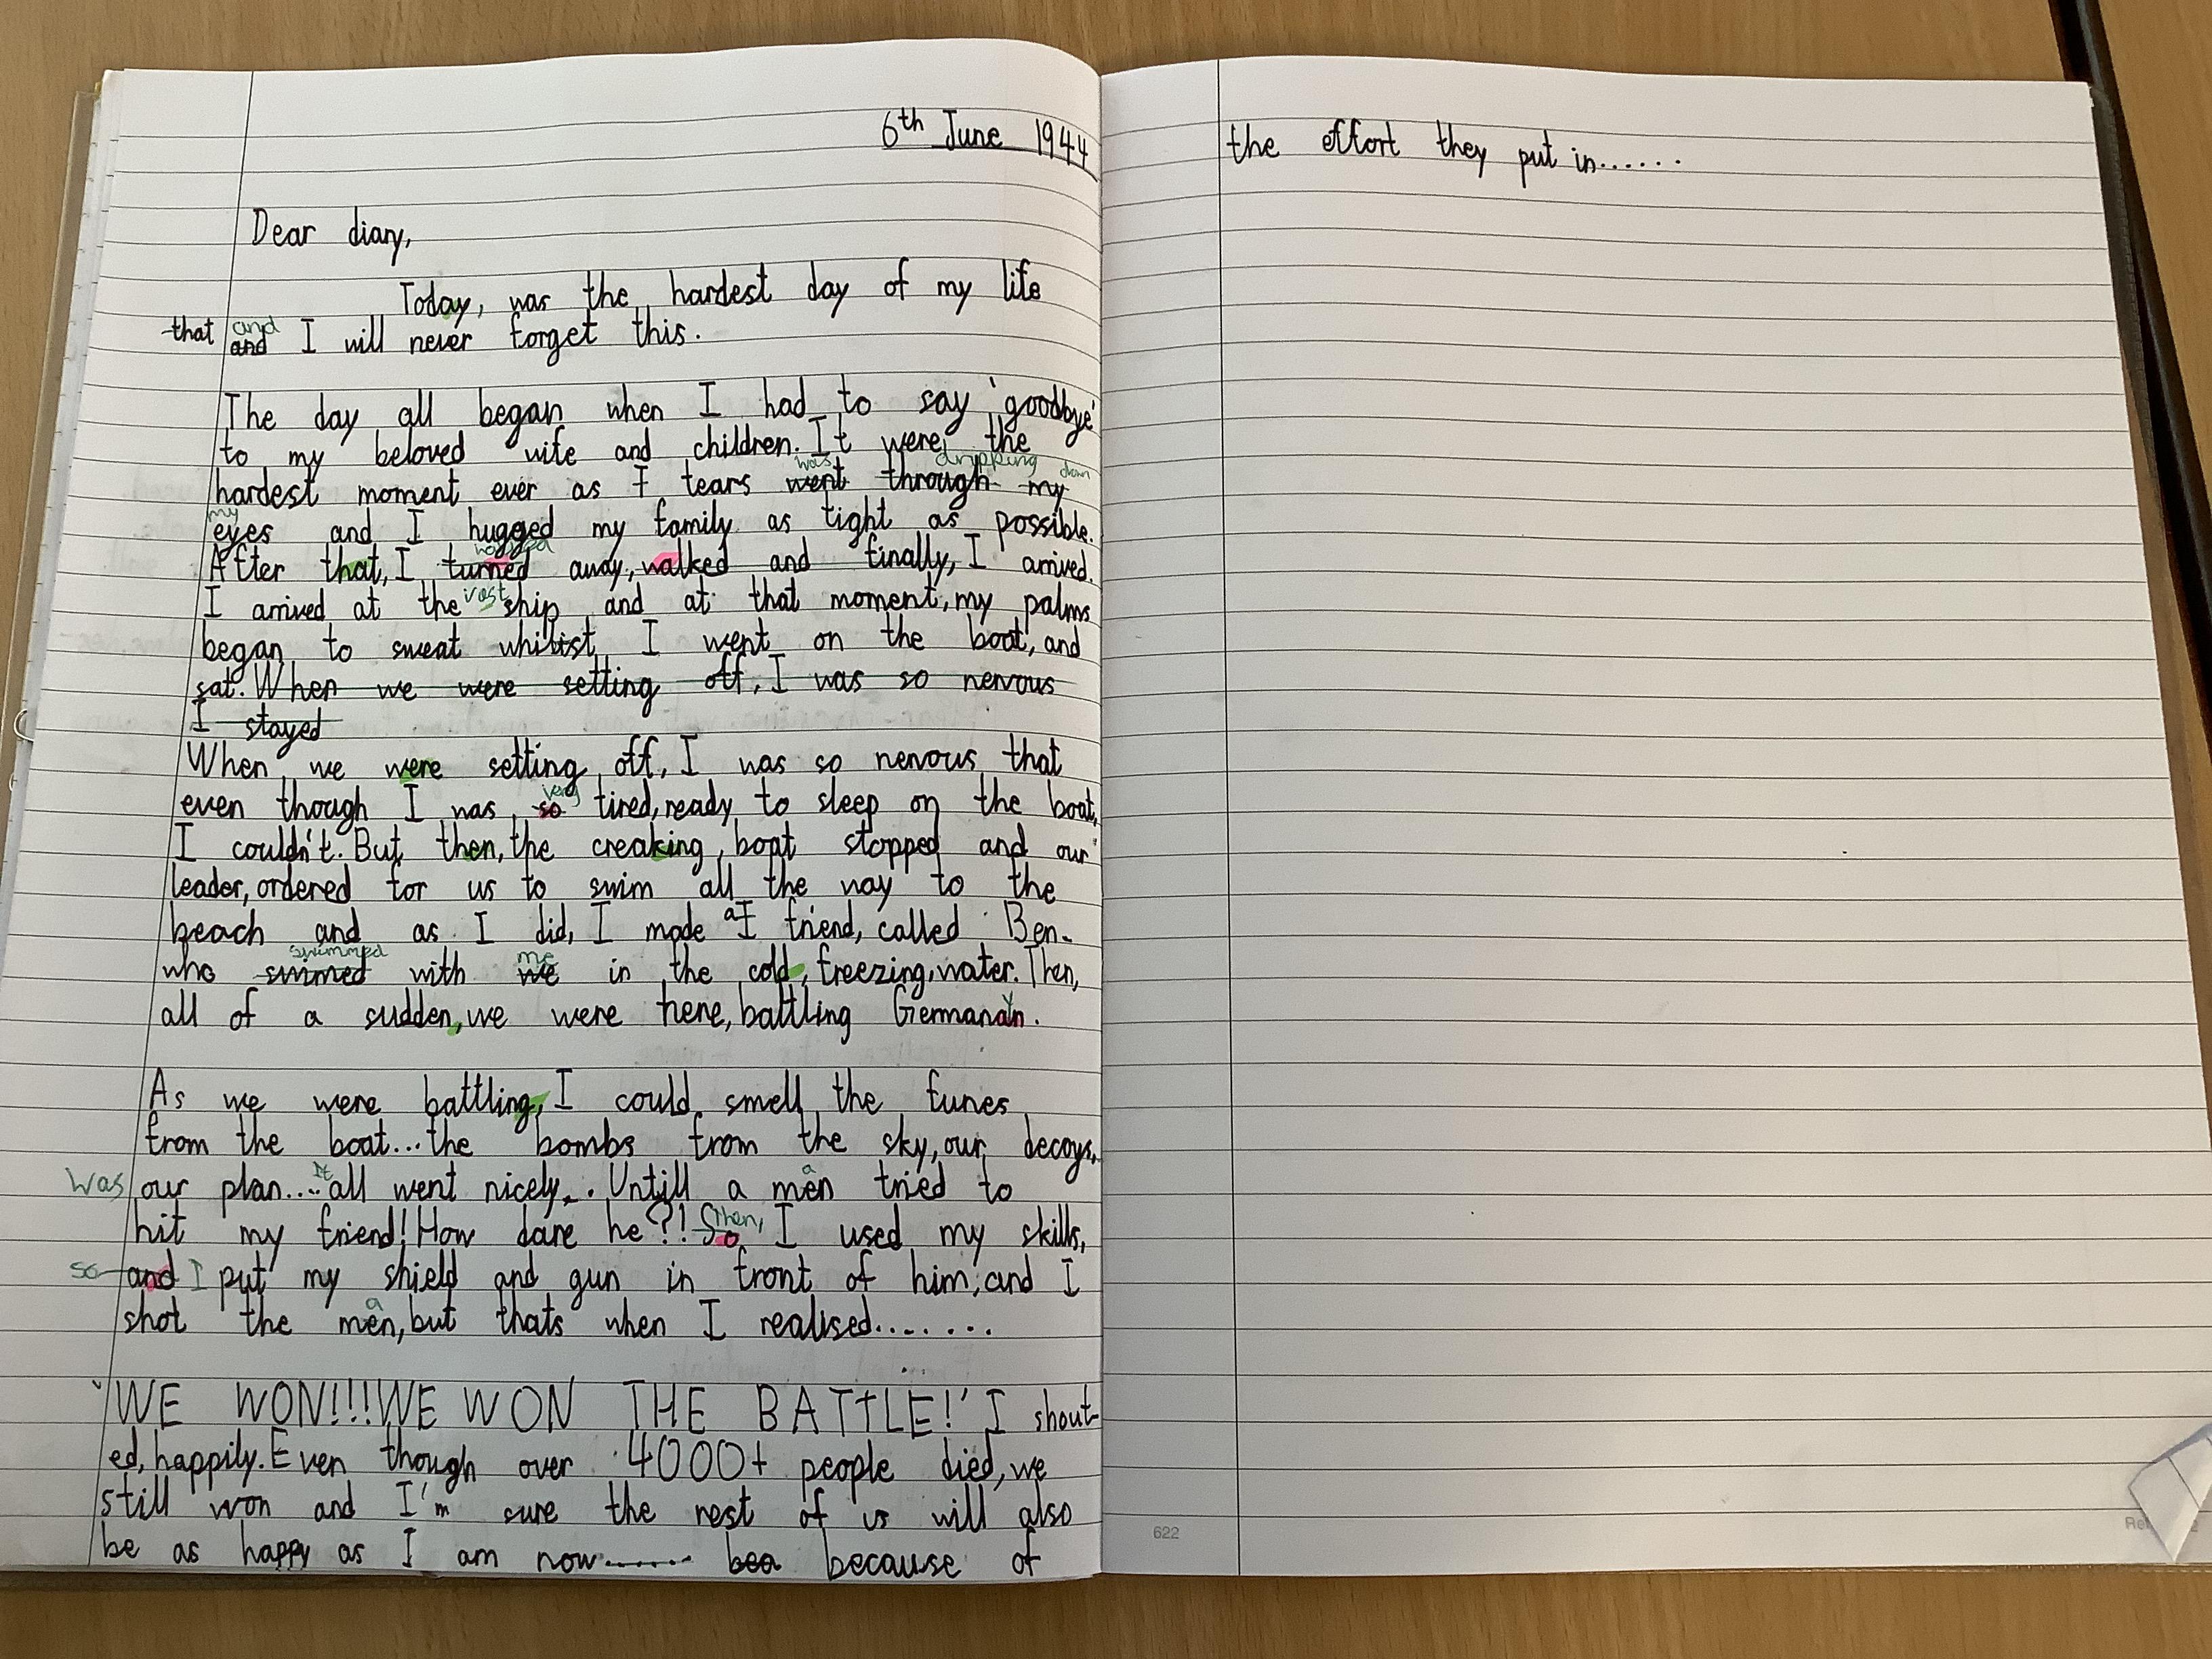 6th June 1944
Dear diary,
Today, was the hardest day of my life
that and
and I will never forget this.
The day all began when I had to say 'goodbye'
to my beloved wife and children. It were the
was dripping down
hardest moment ever as I tears went through my
my
eyes and I hugged my family as tight as possible.
After that, I turned away, walked and finally, I arrived.
I arrived at the vast ship and at that moment, my palms
began to sweat whilist I went on the boat, and
sat. When we were setting off, I was so nervous
I stayed
When we were setting off, I was so nervous that
very
even though I was so tired, ready to sleep on the boat,
I couldn't. But then, the creaking boat stopped and our
leader, ordered for us to swim all the way to the
beach and as I did, I made a friend, called Ben-
swimmed me
who swimmed with we in the cold, freezing, water. Then,
all of a sudden, we were here, battling Germany.
As we were battling, I could smell the funes
from the boat...the bombs from the sky, our decoys,
was It a
our plan.... all went nicely... Untill a men tried to
Then,
hit my friend! How dare he?! So I used my skills,
so and I put my shield and gun in front of him, and I
a
shot the men, but thats when I realised.......
'WE WON!!! WE WON THE BATTLE!' I shout-
ed, happily. Even though over 4000+ people died, we
still won and I'm sure the rest of us will also
be as happy as I am now....... bea because of
the effort they put in......
622